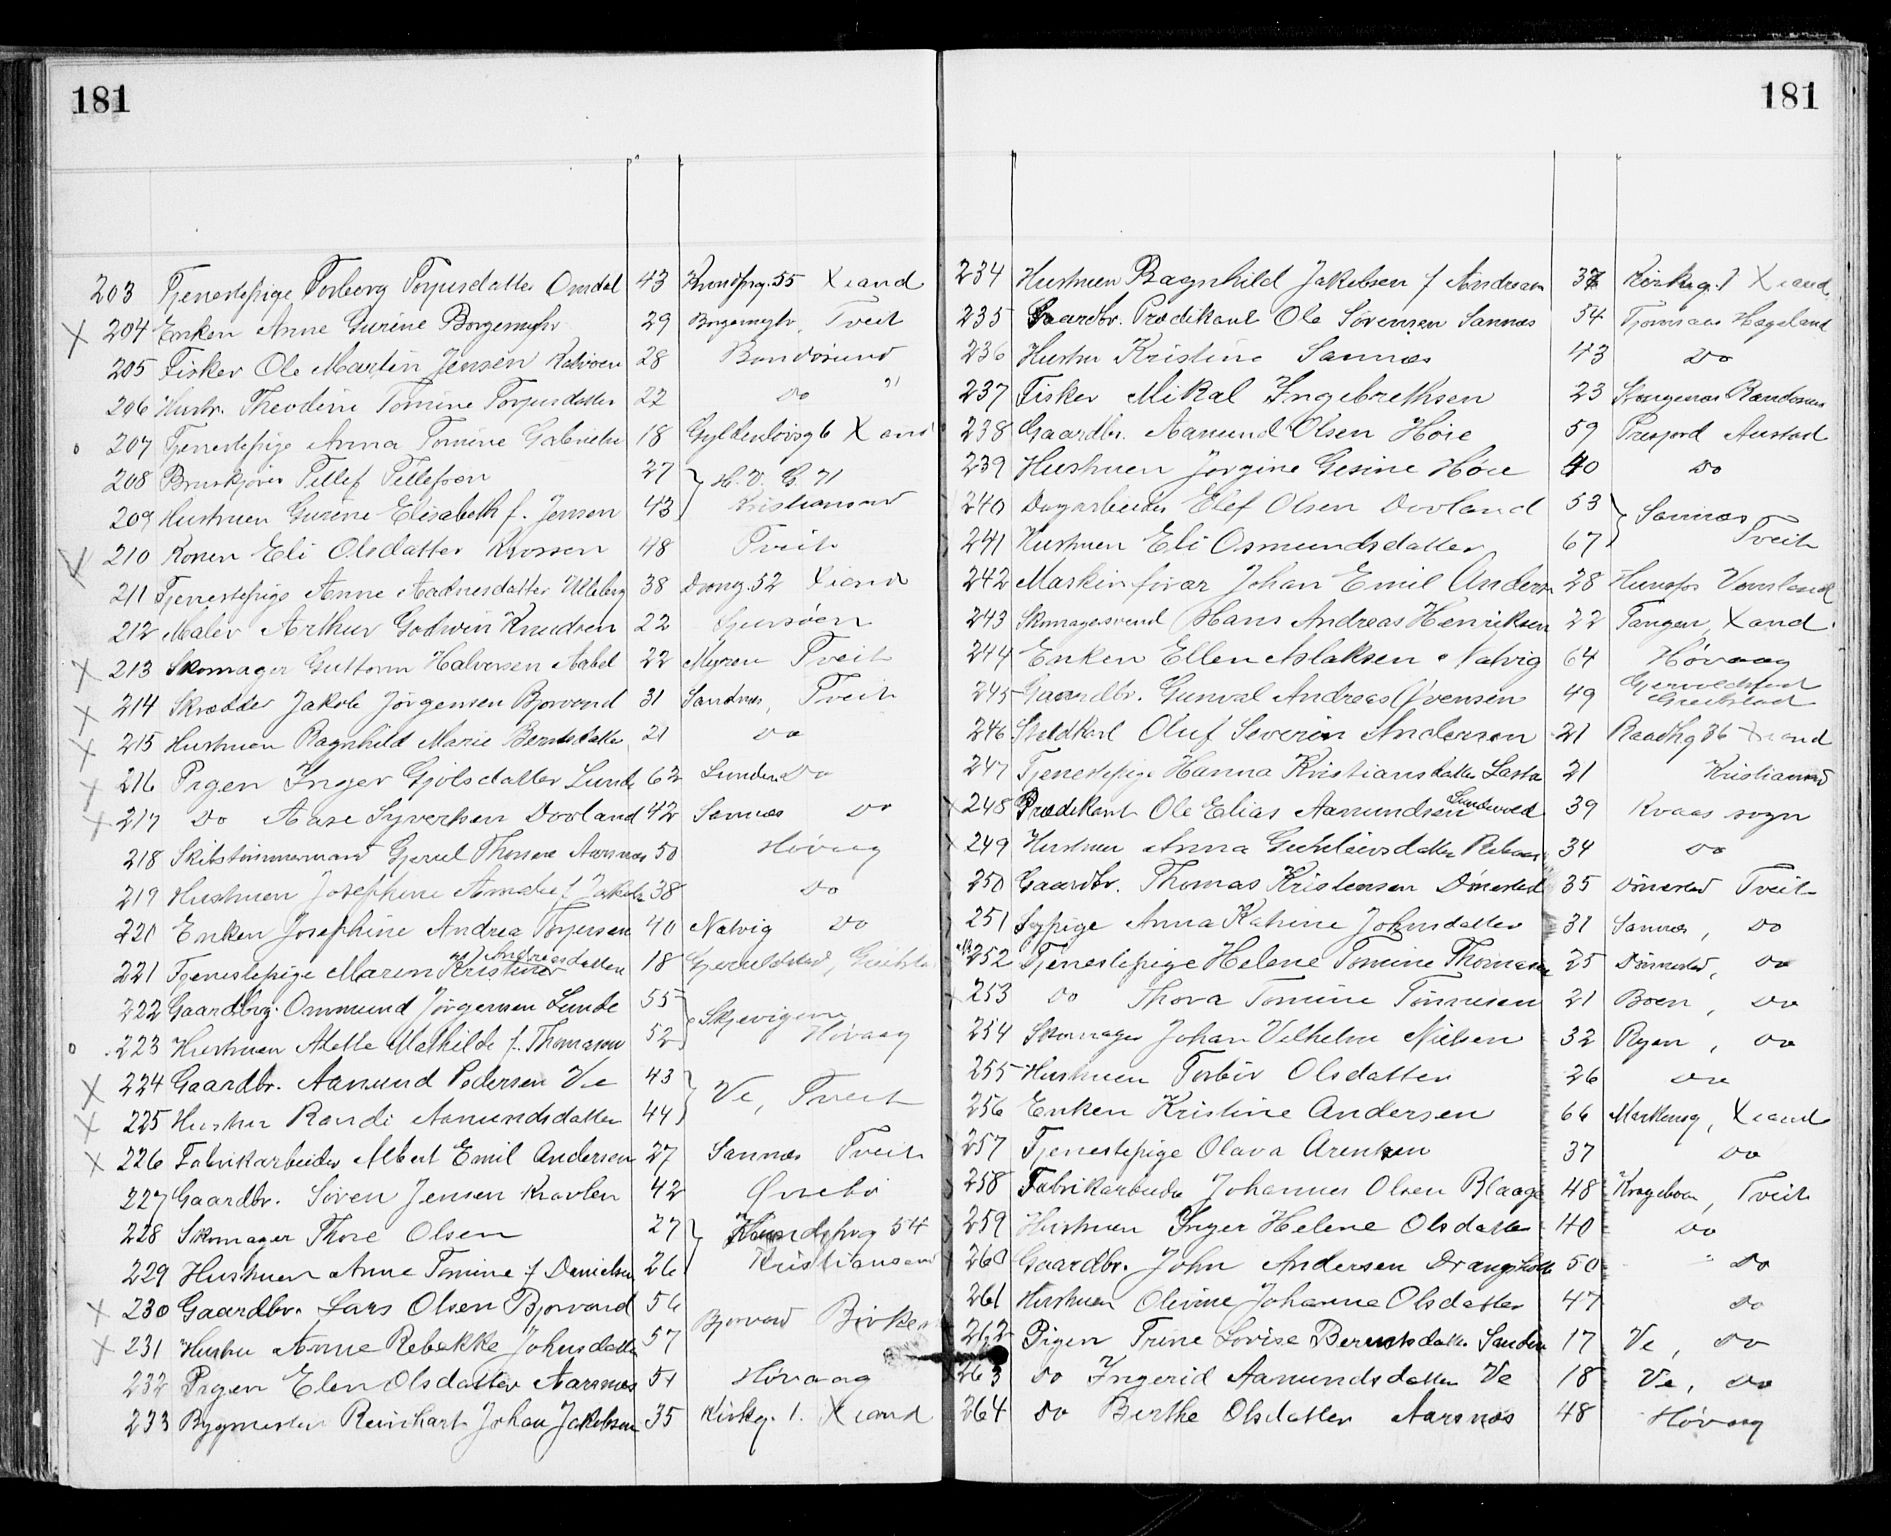 181
203 Tjenestepige Torborg Torjusdatter Omdal 43 Kronprg. 55 X sand
X 204 Enken Anne Gurine Borgemyhr 29 Borgemyhr, Tveit
205 Fisker Ole Martin Jensen 28 Randøsund
206 Hustr. Theodine Tomine Torjusdatter 22 do "
o 207 Tjenestepige Anna Tomine 18 Gyldenløvsg 6 X sand
208 Bruskjører Tellef Tellefsen 27 H. V. G. 71
209 Hustruen Gurine Elisabeth f. Jensen 43 Kristiansand
X 210 Konen Eli Olsdatter Krossen 48 Tveit
211 Tjenestepige Anne Aadnesdatter Ulleberg 38 Drong. 52 X sand
212 Maler Arthur Godwin Knudsen 22
X 213 Skomager Guttorm Halvorsen Aabel 22 Myren Tveit
X 214 Skrædder Jakob Jørgensen Bjorvand 31 Sandnes, Tveit
X 215 Hustruen Ragnhild Marie Berntsdatter 21 do
X 216 Pigen Inger Gjølsdatter Lunde 62 Lunden do
X 217 Do Aase Syvertsen Dovland 42 Sannes do
218 Skibstømmermand Gjerul Thomsen Aarsnes 50 Høvaag
219 Hustruen Josephine Amalie f. Jakobs 38 do
220 Enken Josephine Andrea Torjersen 40 Natvig do
221 Tjenestepige Maren Kristine Andreasdatter 18 Gjeruldstad,
222 Gaardbrg. Ommund Jørgensen Lunde 55 Skjevigen
o 223 Hustruen Alette Mathilde f. Thomasen 52 Høvaag
X 224 Gaardbr. Aamund Pedersen Ve 43 Ve, Tveit
X 225 Hustru Randi Aamundsdatter 44
X 226 Fabrikarbeider Albert Emil Andersen 27 Sannes Tveit
227 Gaardbr. Søren Jensen Kravlen 42 Øvrebø
228 Skomager Thore Olsen 27 54
229 Hustruen Anne Tomine f. Danielsen 26 Kristiansand
X 230 Gaardbr. Lars Olsen Bjorvand 56 Bjorvand Birkenes
X 231 Hustru Anne Rebekke Johnsdatter 57
232 Pigen Elen Olsdatter Aarsnes 51 Høvaag
233 Bygmester Reinhart Johan Jakobsen 35 Kirkg. 1. X sand
181
234 Hustruen Ragnhild Jakobsen f Andersen 37 Kirkeg. 1 X sand
235 Gaardbr. Prædikant Ole Sørensen Sannes 54 Tjomsaas Hægeland
236 Hustru Kristine Sannes 43 do
237 Fisker Mikal Ingebrethsen 23 Stangenes Randøsund
238 Gaardbr. Aamund Olsen Høie 59 Austad
239 Hustruen Jørgine Gesine Høie 40 do
240 Dagarbeider Elef Olsen Dovland 53 Sannes
241 Hustruen Eli Osmundsdatter 67 Tveit
242 Maskinfører Johan Emil Andersen 28 Hunsfos Vennesland
243 Skomagersvend Hans Andreas Henriksen 22 Tangen, X sand
244 Enken Ellen Aslaksen Natvig 64 Høvaag
245 Gaardbr. Gunval Andreas Evensen 49 Gjeruldstad
246 Staldkarl Oluf Severin Andersen 21 Raadhg 36 X sand
247 Tjenestepige Hanna Kristiansdatter 21 Kristiansand
X 248 Prædikant Ole Elias Aamundsen Sundevold 39 Kvaas sogn
249 Hustruen Anna 34 do
250 Gaardbr. Thomas Kristensen Dønnestad 35 Dønnestad Tveit
251 Sypige Anna Katrine Johnsdatter 31 Sannes, do
252 Tjenestepige Helene Tomine Thomasen 25 Dønnestad, do
253 do Thora Tomine Tønnesen 21 Boen, do
254 Skomager Johan Velhelm Nielsen 32 Ryen, do
255 Hustruen Torbør Olsdatter 26 do
256 Enken Kristine Andersen 66 Markensg, X sand
257 Tjenestepige Olava Arentsen 37 do
258 Fabrikarbeider Johannes Olsen Blaage 48 Krageboen, Tveit
259 Hustruen Inger Helene Olsdatter 40 do
260 Gaardbr. John Andersen Drangsholt 50 " do
261 Hustruen Olivine Johanne Olsdatter 47 do
262 Pigen Trine Lovise Berentsdatter 17 Ve, do
263 do Ingerid Aamundsdatter Ve 18 Ve, do
264 do Berthe Olsdatter Aarsnes 48 Høvaag